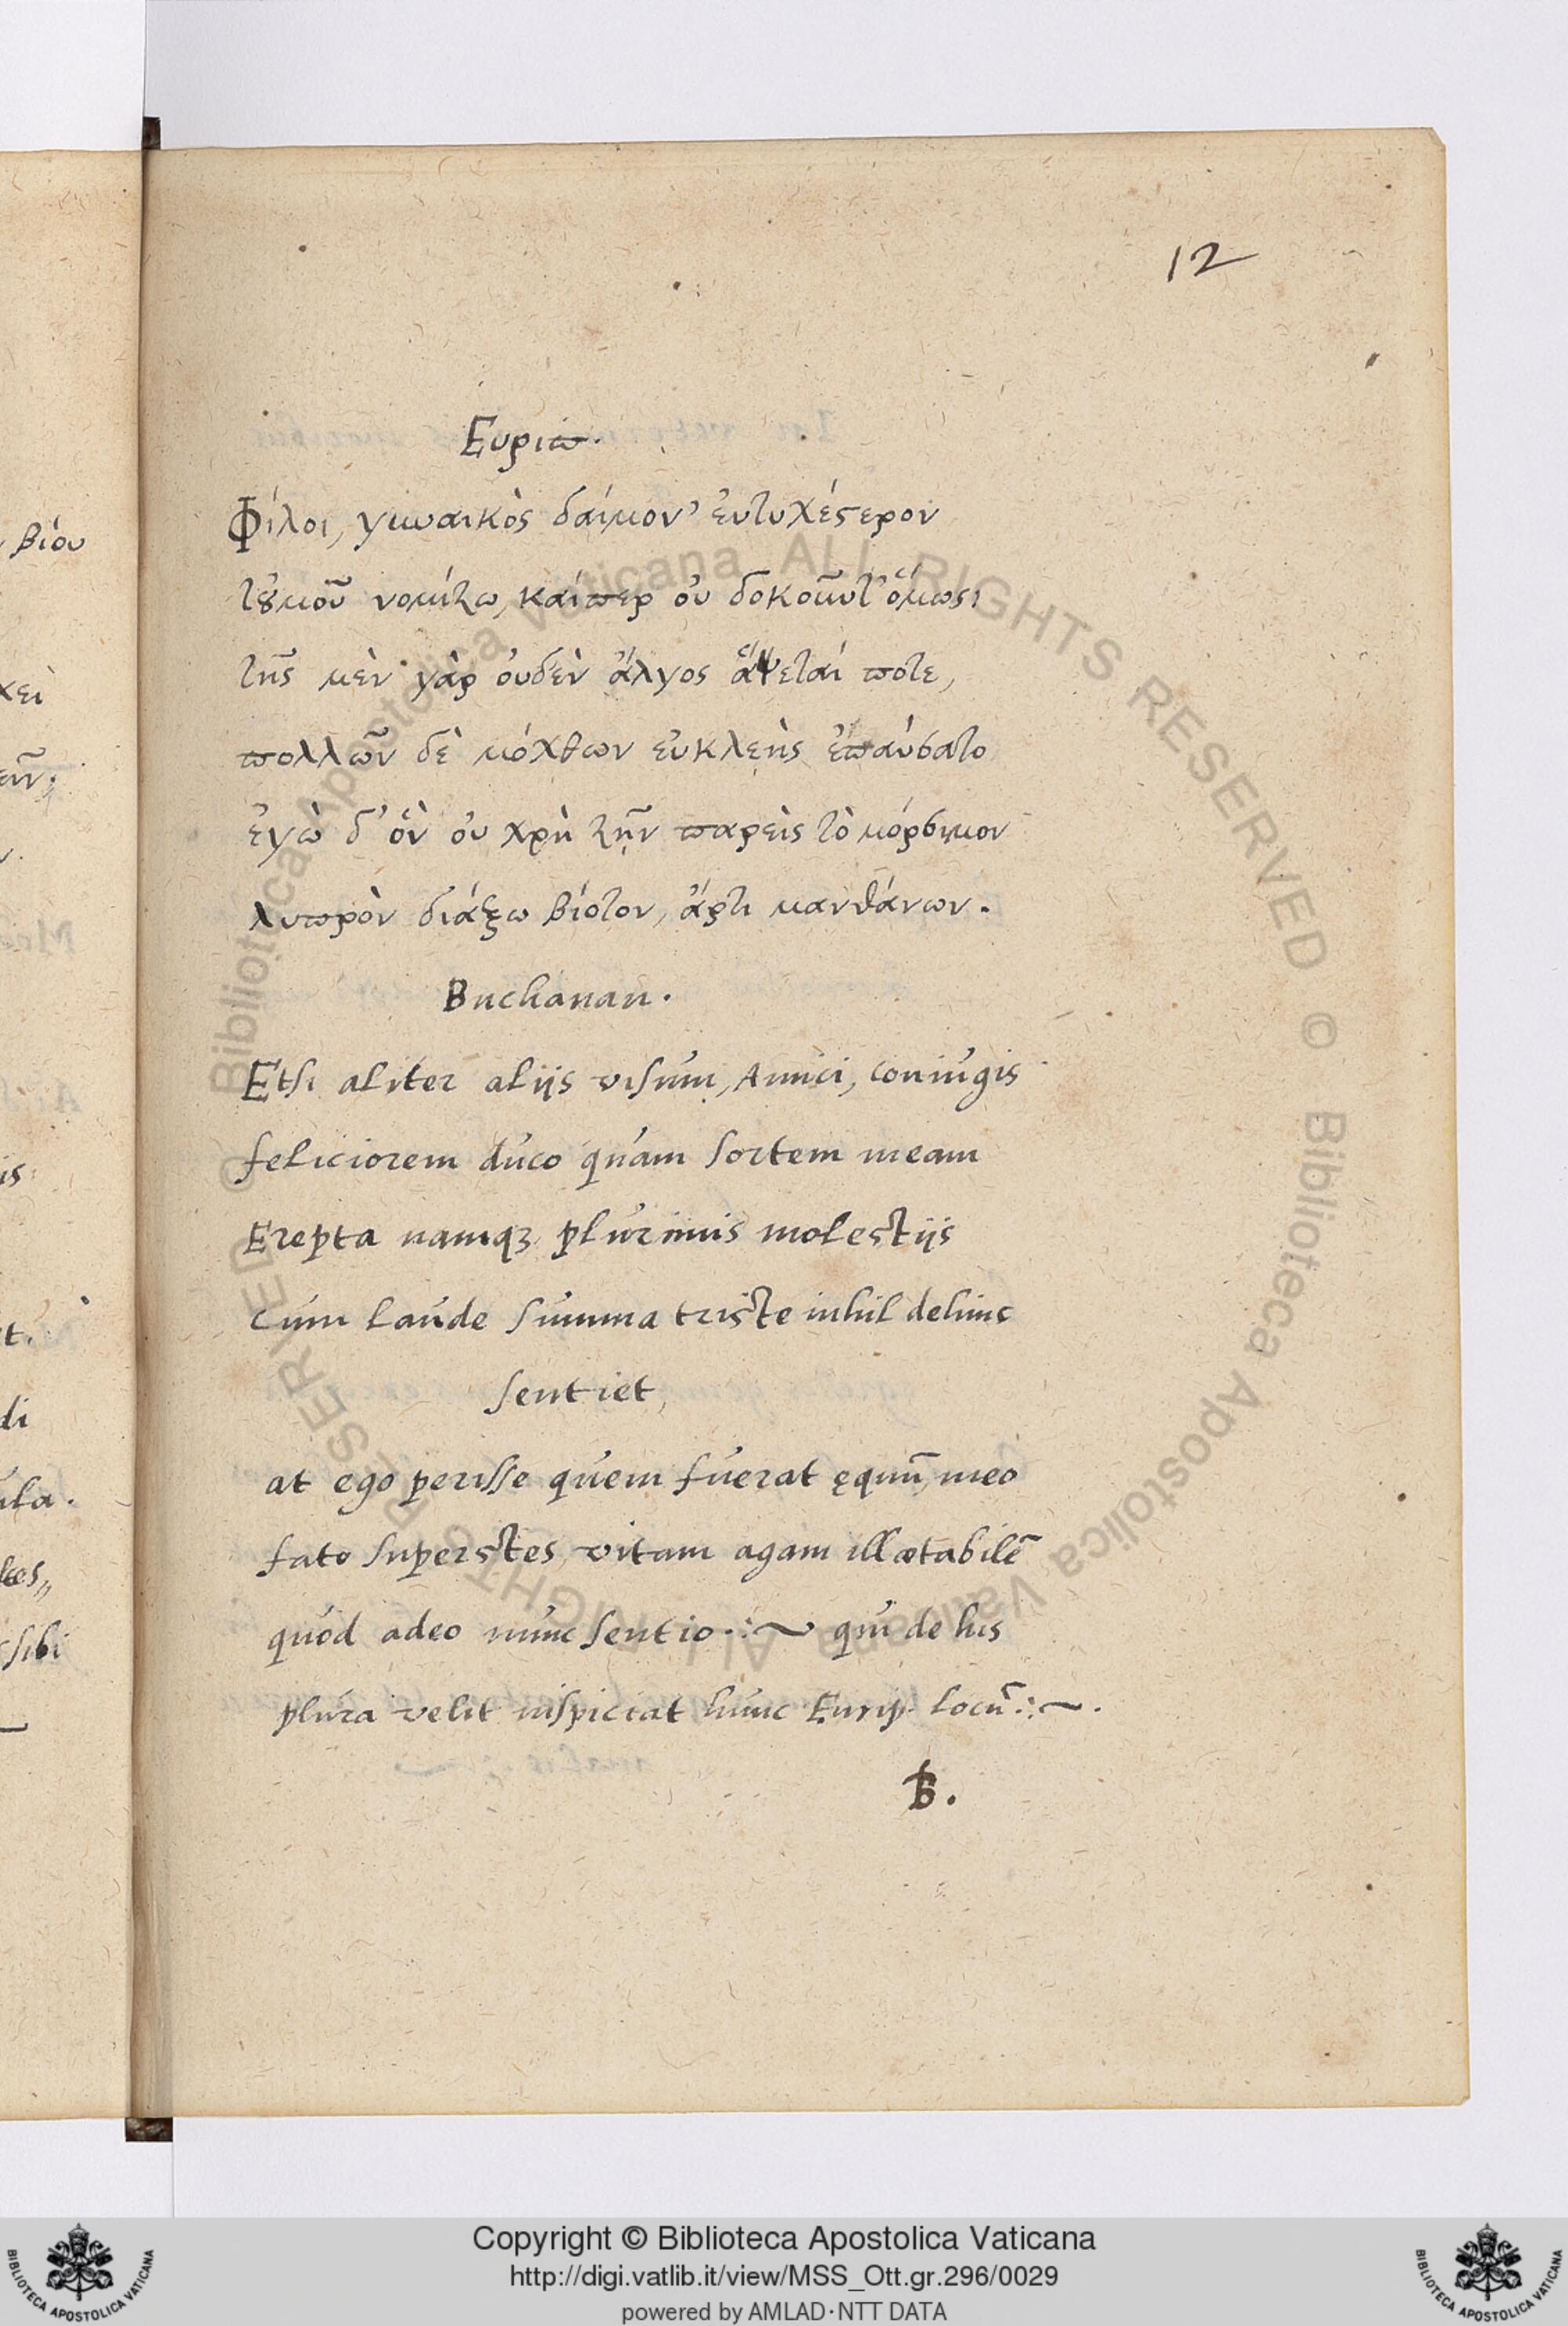 12
Ευριπ.
Φίλοι, γυναικὸς δαίμον' ἐυτυχέστερον
τȣ̓μοῦ νομίζω, καίπερ ὀυ δοκοῦντ' ὅμως·
τῆς μὲν γὰρ ὀυδὲν ἄλγος ἅψεταί ποτε,
πολλῶν δὲ μόχθων ἐυκλεὴς ἐπαύσατο
ἐγὼ δ' ὃν ὀυ χρὴ ζῆν παρεὶς τὸ μόρσιμον
λυπρὸν διάξω βίοτον, ἄρτι μανθάνων.
Buchanan.
Etsi aliter alijs visum, Amici, coniugis
feliciorem duco quam sortem meam
Erepta namqꝫ plurimis molestijs
cum laude summa triste nihil dehinc
sentiet,
at ego perisse quem fuerat ęquū, meo
fato superstes, vitam agam illætabilē
quod adeo nunc sentio.:~ qui de his
plura velit inspiciat hunc Eurip. locū.:~.
B.
βίου
χει
ις
t.
di
ula.
sibi
Copyright © Biblioteca Apostolica Vaticana
http://digi.vatlib.it/view/MSS_Ott.gr.296/0029
powered by AMLAD·NTT DATA
BIBLIOTECA APOSTOLICA VATICANA
BIBLIOTECA APOSTOLICA VATICANA